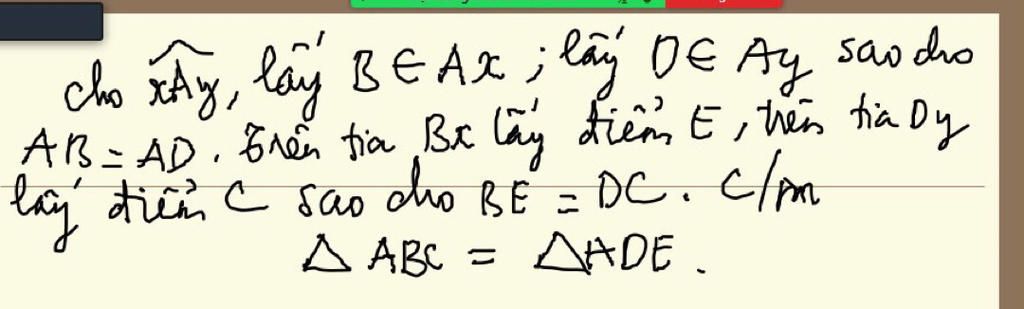 cho xÂy, lấy B ∈ Ax ; lấy D ∈ Ay sao cho
AB = AD. Trên tia Bx lấy điểm E, trên tia Dy
lấy điểm C sao cho BE = DC. C/m
△ ABC = △ADE.